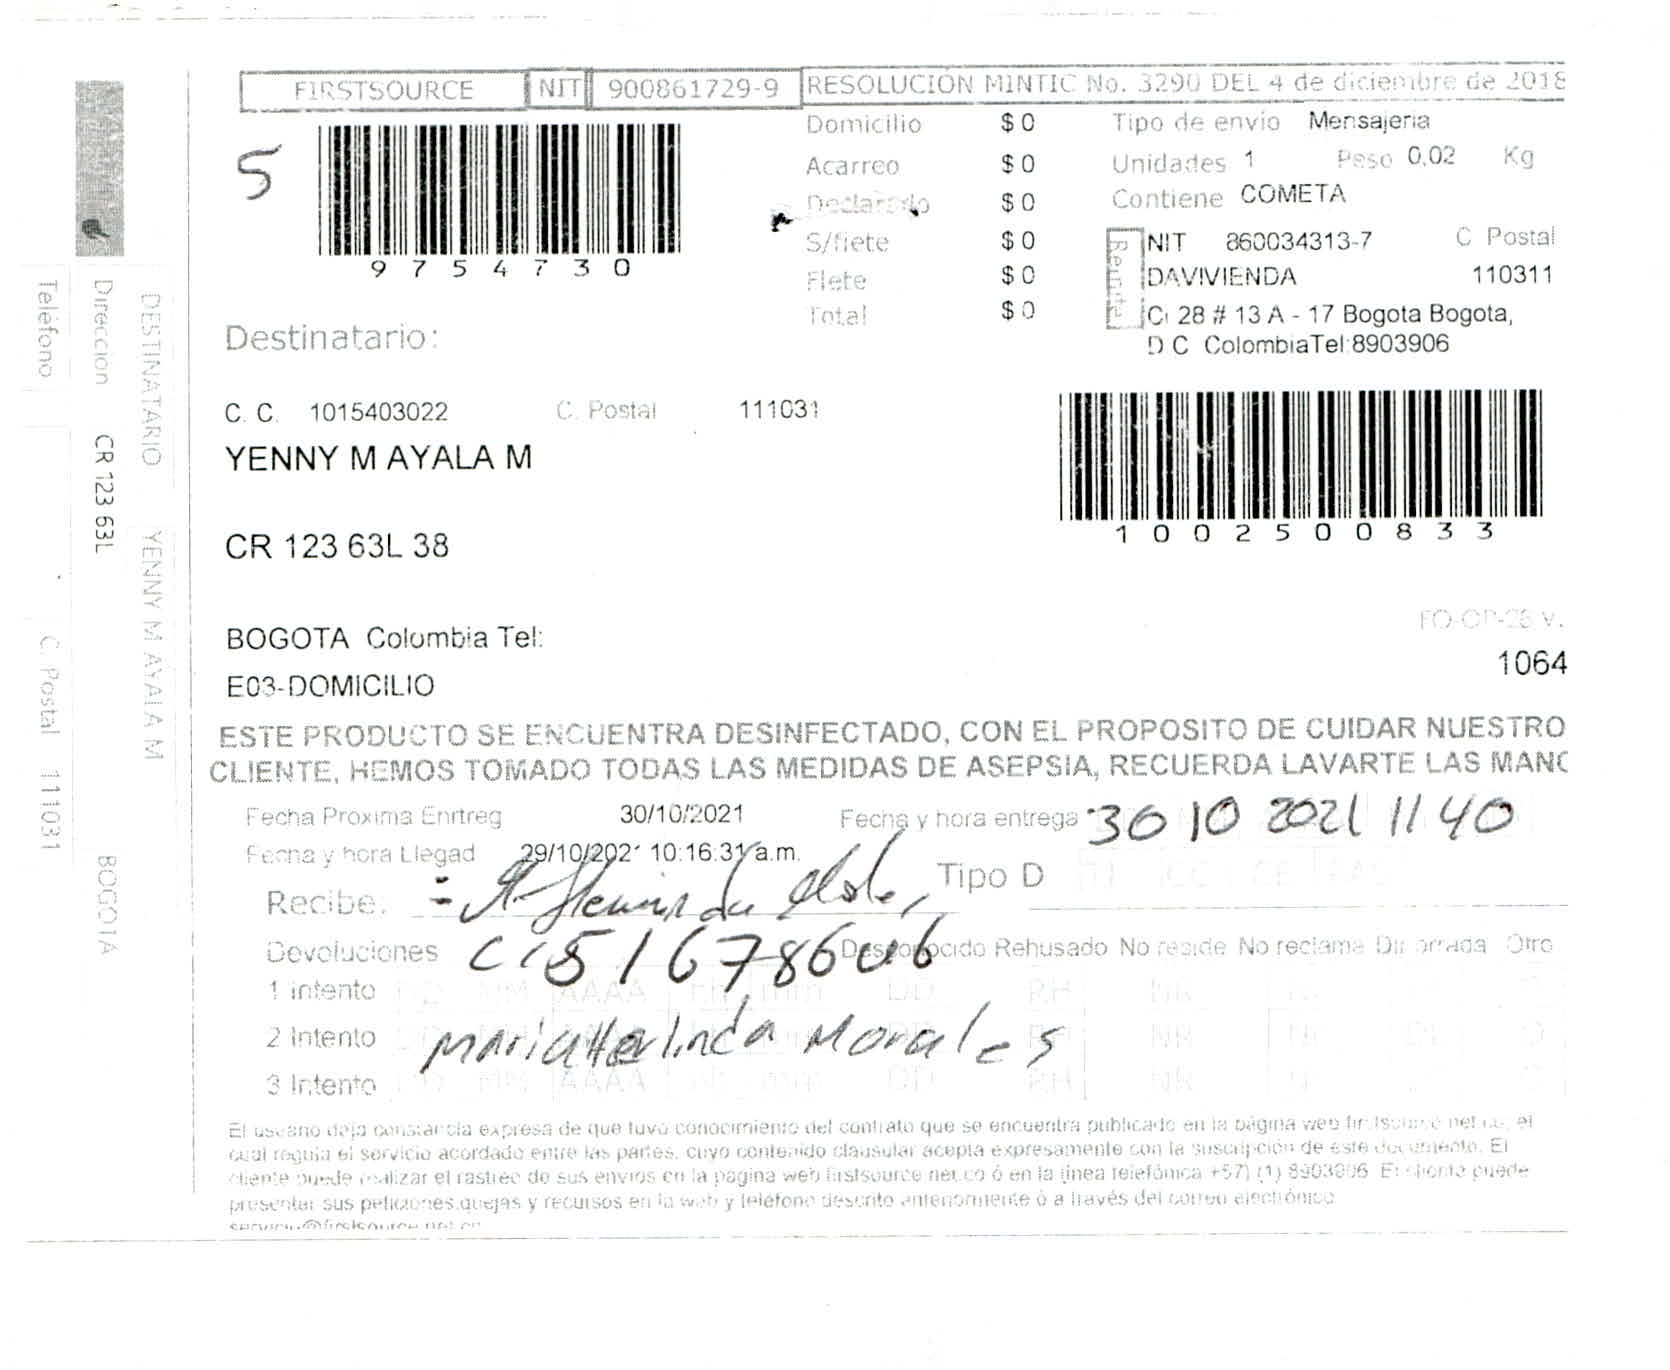 FIRSTSOURCE NIT 900861729-9 RESOLUCIÓN MINTIC No. 3290 DEL 4 de diciembre de 2018
5
9754730
Domicilio $ 0
Acarreo $ 0
Declarado $ 0
S/flete $ 0
Flete $ 0
Total $ 0
Tipo de envío Mensajeria
Unidades 1 Peso 0,02 Kg
Contiene COMETA
Remite
NIT 860034313-7 C Postal
DAVIVIENDA 110311
28 # 13 A - 17 Bogota Bogota,
D C ColombiaTel:8903906
Destinatario:
C. C. 1015403022 C. Postal 111031
YENNY M AYALA M
1002500833
CR 123 63L 38
BOGOTA Colombia Tel:
E03-DOMICILIO
FO-OP-28 V.
1064
ESTE PRODUCTO SE ENCUENTRA DESINFECTADO, CON EL PROPOSITO DE CUIDAR NUESTRO
CLIENTE, HEMOS TOMADO TODAS LAS MEDIDAS DE ASEPSIA, RECUERDA LAVARTE LAS MANO
Fecha Proxima Enrtreg 30/10/2021
Fecha y hora entrega 30 10 2021 11 40
Fecha y hora Llegad 29/10/2021 10:16:31 a.m.
Tipo D TI CC CE
Recibe:
Devoluciones Desconocido Rehusado No reside No reclama Dir errada Otro
1 intento DD MM AAAA HH mm DD RH NR
2 Intento RH NR
3 Intento DD MM AAAA HH mm DD RH NR
Maria Herlinda Morales
El usuario deja constancia expresa de que tuvo conocimiento del contrato que se encuentra publicado en la página web firstsource.net.co, el
cual regula el servicio acordado entre las partes, cuyo contenido clausular acepta expresamente con la suscripción de este documento. El
cliente puede realizar el rastreo de sus envios en la pagina web firstsource.net.co ó en la línea telefónica +57) (1) 8903906 El cliente puede
presentar sus peticiones,quejas y recursos en la web y telefono descrito anteriormente ó a través del correo electrónico
servicio@firstsource.net.co
DESTINATARIO YENNY M AYALA M
Direccion CR 123 63L BOGOTA
Teléfono C. Postal 111031